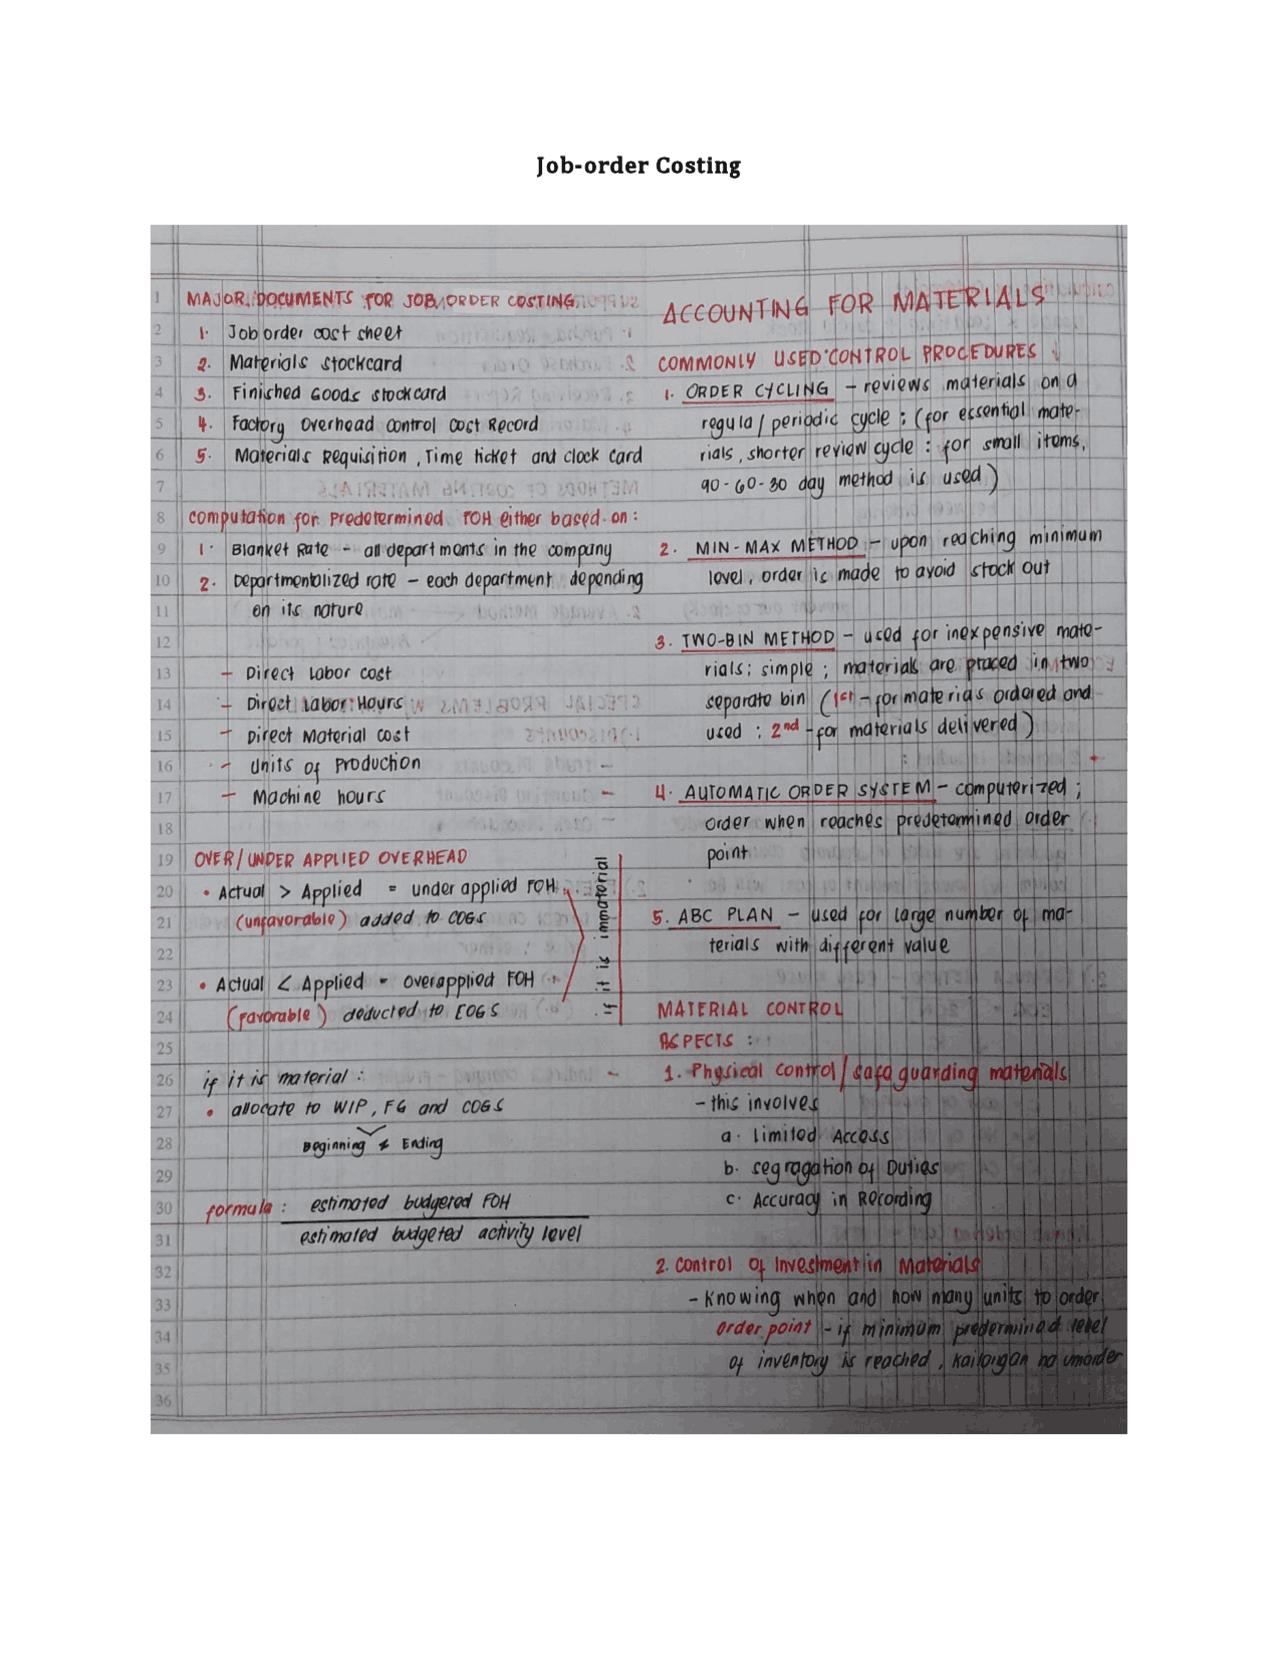 Job-order Costing
MAJOR DOCUMENTS FOR JOB ORDER COSTING
1. Job order cost sheet
2. Materials stockcard
3. Finished Goods stockcard
4. Factory Overhead control cost Record
5. Materials Requisition, Time ticket and clock card
computation for Predetermined FOH either based on:
1. Blanket Rate - all departments in the company
2. Departmentalized rate - each department depending
on its nature
- Direct Labor cost
- Direct Labor Hours
- Direct Material cost
- units of Production
- Machine hours
OVER/UNDER APPLIED OVERHEAD
• Actual > Applied = under applied FOH
(unfavorable) added to COGS
• Actual < Applied = overapplied FOH
(favorable) deducted to COGS
if it is immaterial
if it is material:
• allocate to WIP, FG and COGS
Beginning & Ending
formula: estimated budgered FOH
estimated budgeted activity level
ACCOUNTING FOR MATERIALS
COMMONLY USED CONTROL PROCEDURES
1. ORDER CYCLING - reviews materials on a
regular/periodic cycle; (for essential mate-
rials, shorter review cycle: for small items,
90-60-30 day method is used)
2. MIN-MAX METHOD - upon reaching minimum
level, order is made to avoid stock out
3. TWO-BIN METHOD - used for inexpensive mate-
rials; simple; materials are placed in two
separate bin (1st - for materials ordered and
used; 2nd - for materials delivered)
4. AUTOMATIC ORDER SYSTEM - computerized;
order when reaches predetermined order
point
5. ABC PLAN - used for large number of ma-
terials with different value
MATERIAL CONTROL
ASPECTS:
1. Physical control/safeguarding materials
- this involves
a. Limited Access
b. segragation of Duties
c. Accuracy in Recording
2. Control of Investment in Materials
- Knowing when and how many units to order
order point - if minimum predermined level
of inventory is reached, kailangan na umorder